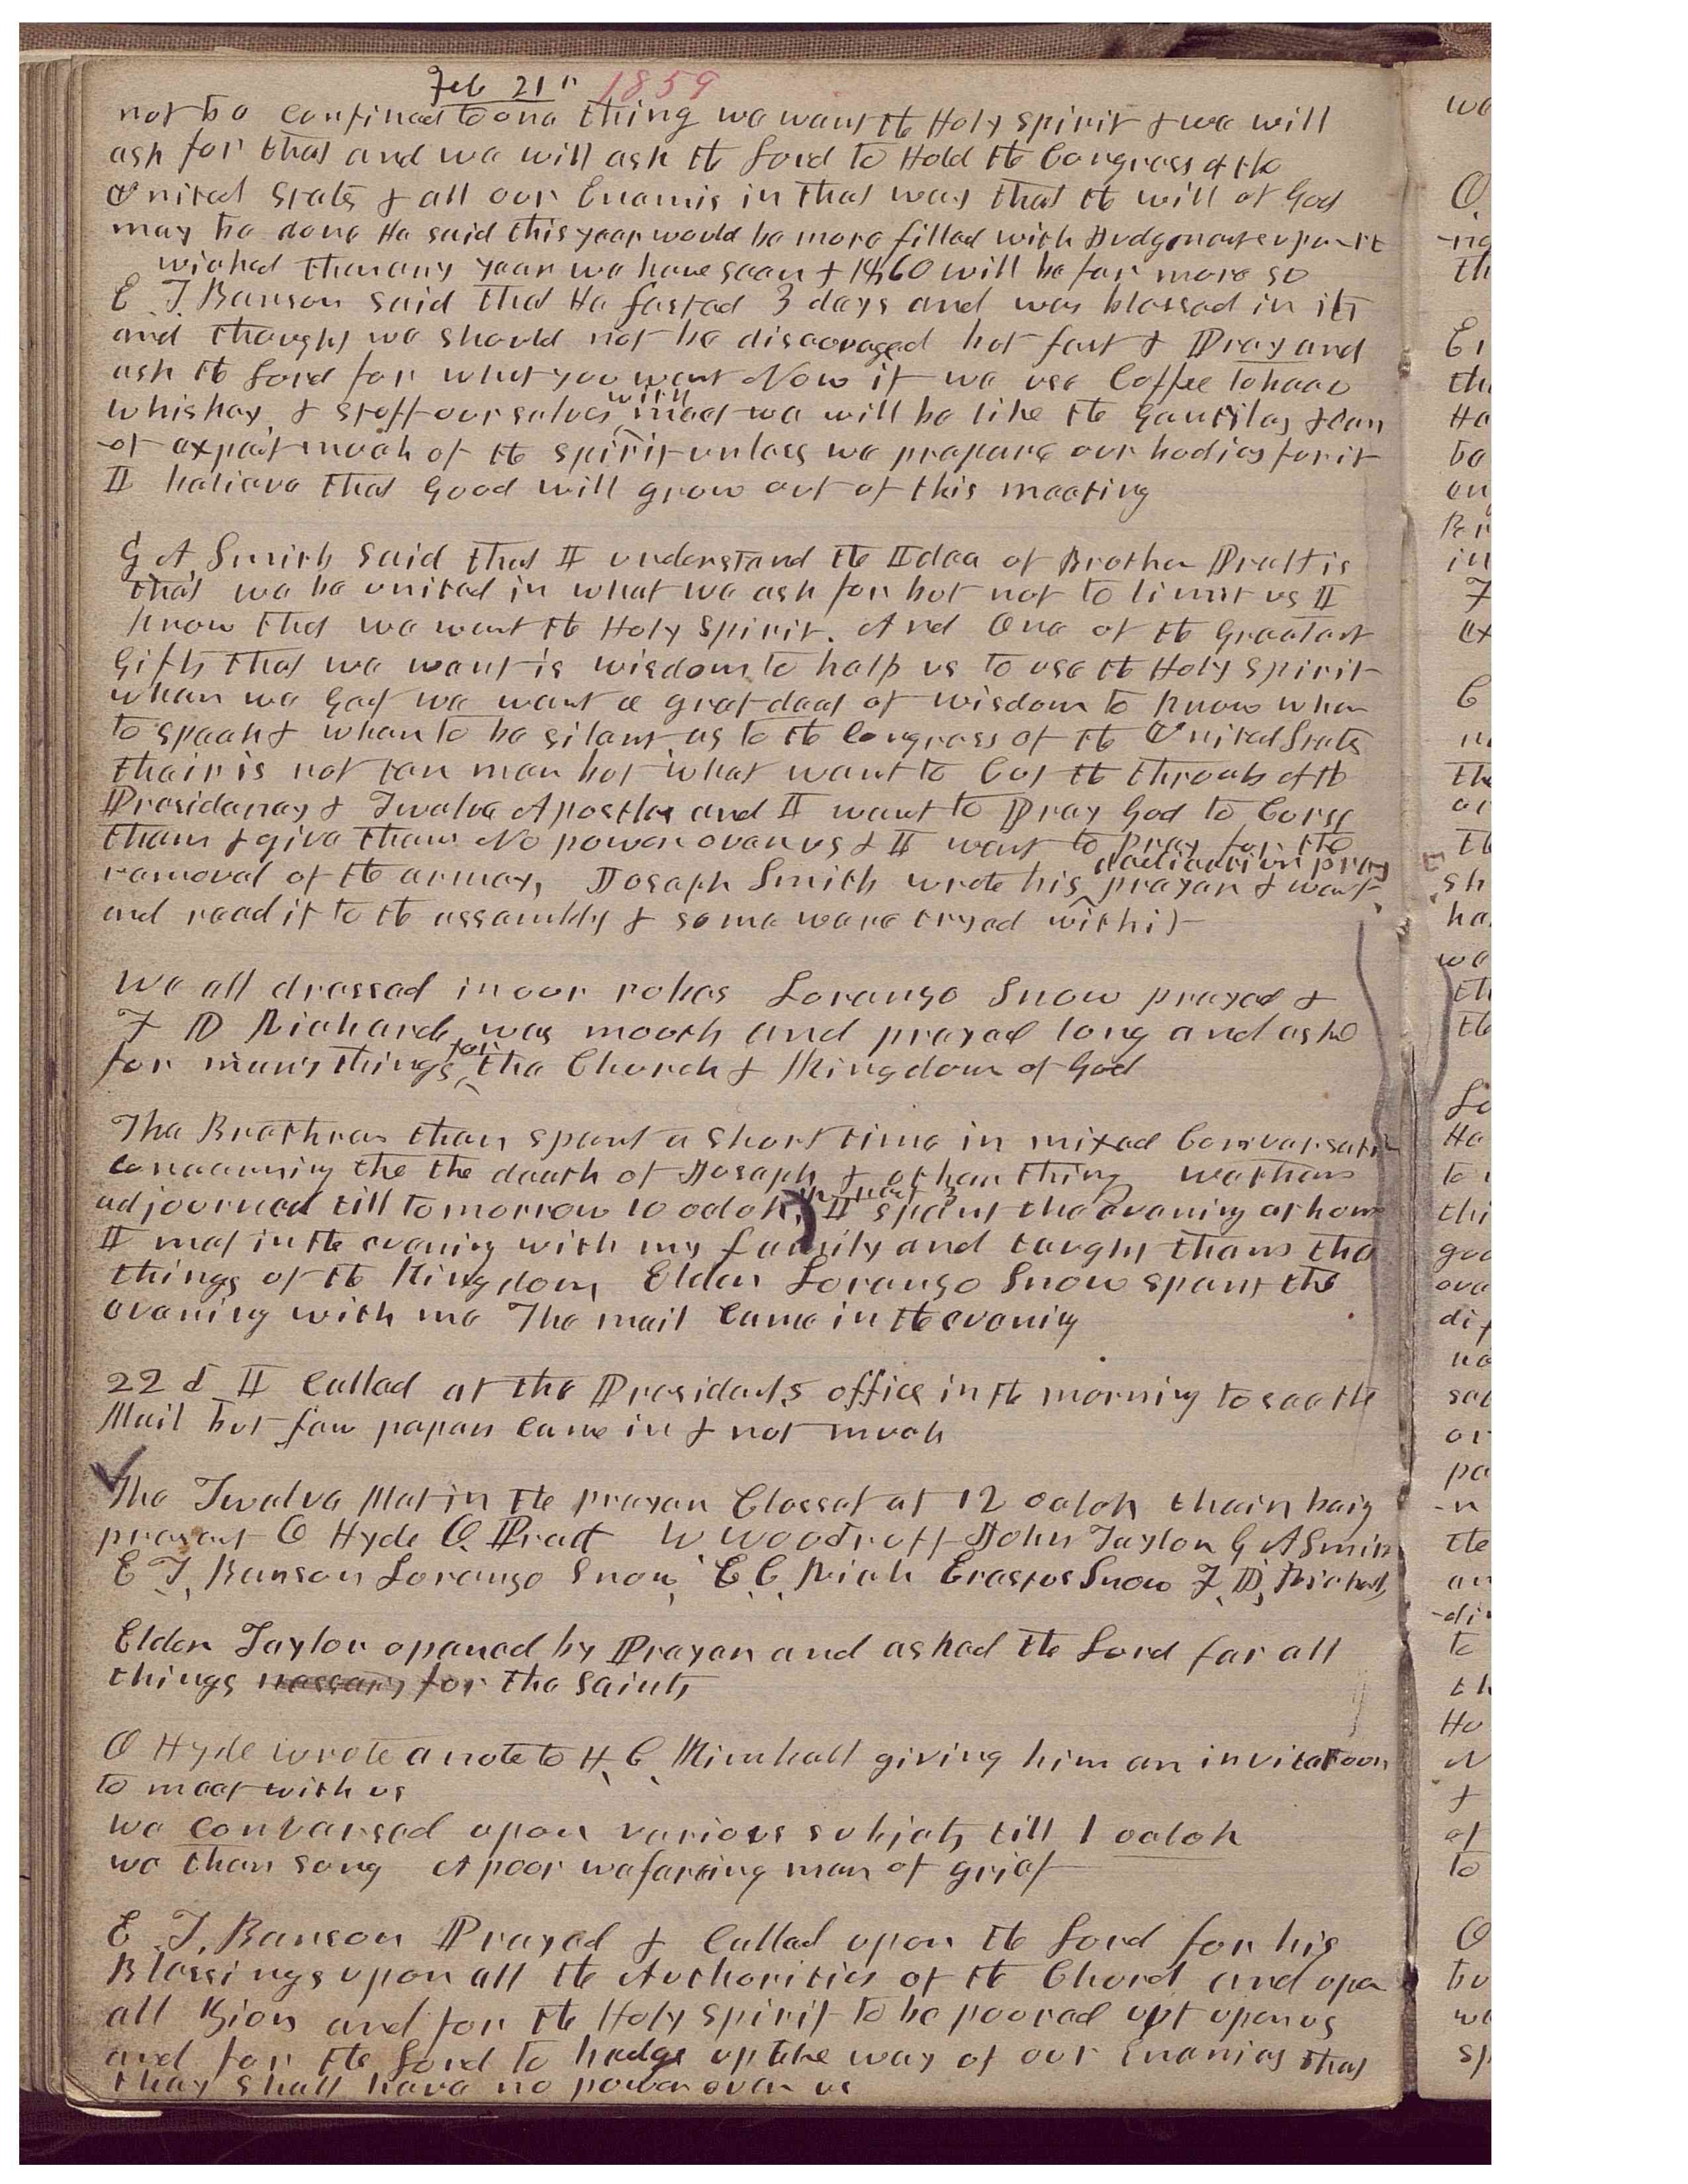 Feb 21" 1859
not be confined to one thing we want the Holy spirit & we will
ask for that and we will ask the Lord to Hold the Congress of the
United States & all our Enemis in that way that the will of God
may be done He said this year would be more filled with Judgments upon the
wicked than any year we have seen & 1860 will be far more so
E T. Benson said that He fasted 3 days and was blessed in it
and thought we should not be discouraged but fast & Pray and
ask the Lord for what you want Now if we use Coffee Tobaco
whiskey, & stuff ourselves with meat we will be like the gentiles & can
ot expect much of the spirit unless we prepare our bodies for it
I believe that Good will grow out of this meeting
G A Smith said that I understand the Idea of Brother Pratt is
that we be united in what we ask for but not to limit us I
know that we want the Holy spirit. And One of the Greatest
Gifts that we want is wisdom to help us to use the Holy spirit
when we Get we want a great deal of wisdom to know when
to speak & when to be silent, as to the Congress of the United States
their is not ten men but what want to Cut the throats of the
Presidency & Twelve Apostles and I want to Pray God to Curse
them & give them No power over us & I want to pray for the
removal of the army, Joseph Smith wrote his dedication pray prayer & went
and read it to the assembly & some were tryed with it
We all dressed in our robes Lorenzo Snow prayed &
F D Richards was mouth and prayed long and aske
for many things for the Church & Kingdom of God
The Brethren then spent a short time in mixed Conversatin
concerning the the death of Joseph & other thing we then
adjourned till tomorrow 10 oclok, I spent the evening at home
I met in the evening with my family and taught them the
things of the Kingdom, Elder Lorenzo Snow spent the
evening with me The mail came in the evening
22d I Called at the Presidents office in the morning to see the
Mail but few papers came in & not much
The Twelve Met in the prayer Closset at 12 oclok their being
present O Hyde O. Pratt W Woodruff John Taylor G A Smith
E T, Benson Lorenzo Snow, C C, Rich Erastus Snow F. D, Richards,
Elder Taylor opened by Prayer and asked the Lord for all
things nessary for the Saints
O Hyde wrote a note to H. C. Kimball giving him an invitatoon
to meet with us
we conversed upon various subjets till 1 oclok
we then sung A poor wafareing man of grief
E. T. Benson Prayed & Called upon the Lord for his
Blessings upon all the Authorities of the Churd and upon
all Zion and for the Holy spirit to be poored out upon us
and for the Lord to hedge up the way of our Enemies that
they shall have no power over us